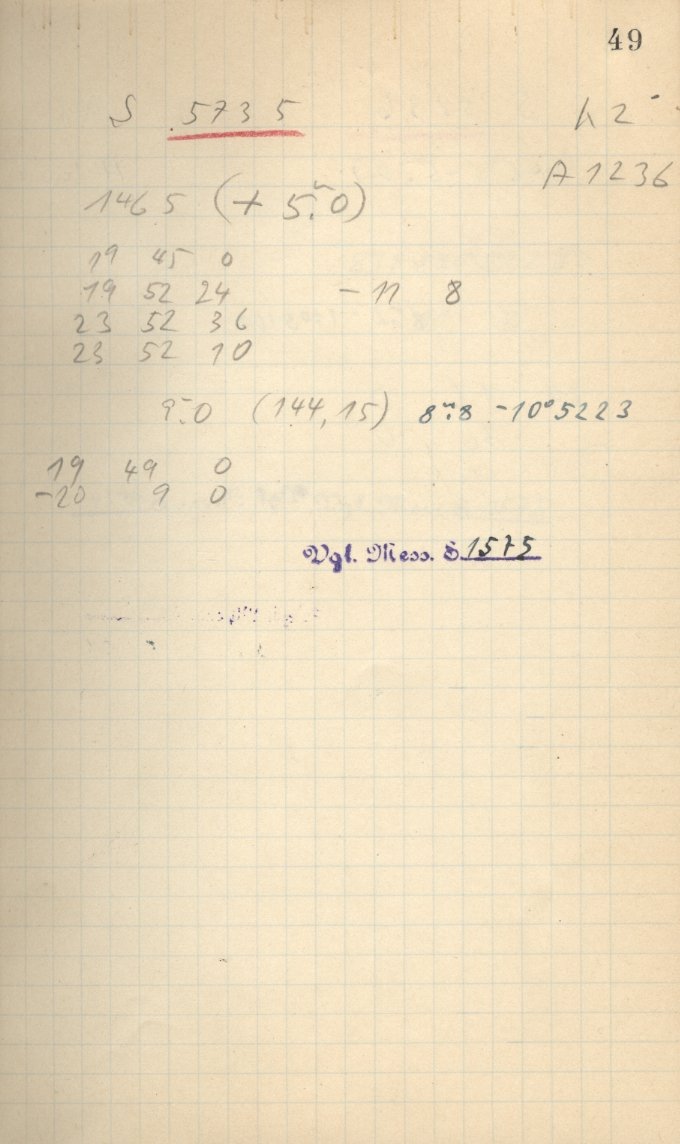 49
S 5735 h 2
A 1236
1465 (+ 5m.0)
19 45 0
19 52 24 - 11 8
23 52 36
23 52 10
9m.0 (144,15) 8m.8 -10°5223
19 49 0
-20 9 0
Vgl. Mess. S 1575